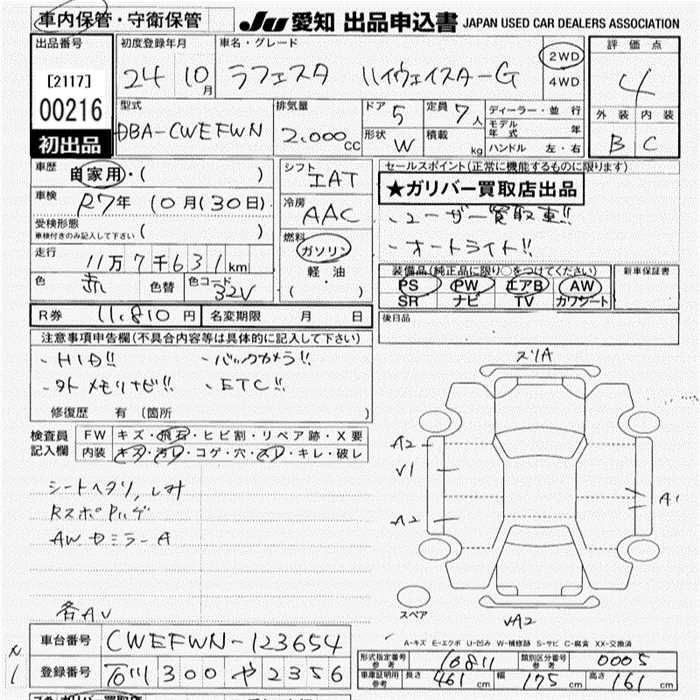 車内保管・守衛保管
JU 愛知 出品申込書 JAPAN USED CAR DEALERS ASSOCIATION
出品番号 初度登録年月 車名・グレード 評価点
[2117] 24 10月 ラフェスタ ハイウェイスターG 2WD 4WD 4
00216 型式 排気量 ドア 5 定員 7人 ディーラー・並行 外装 内装
DBA-CWEFWN 2,000cc 形状 W 積載 kg モデル年式 年 B C
初出品 ハンドル 左・右
車歴 自家用・( ) シフト IAT セールスポイント(正常に機能するものに限ります)
車検 R7年 10月(30日) 冷房 AAC ★ガリバー買取店出品
受検形態 ( ) - ユーザー買取車!!
車検付きのみ記入して下さい 燃料 - オートライト!!
走行 11万7千631km ガソリン
軽油
( )
装備品(純正品に限り○をつけてください) 新車保証書
色 赤 色替 色コード 32V PS PW エアB AW
SR ナビ TV カワシート
R券 11,810円 名変期限 月 日 後日品
注意事項申告欄(不具合内容等は具体的に記入して下さい)
- HID!! - バックカメラ!!
- 外メモリナビ!! - ETC!!
修復歴 有(箇所 )
検査員記入欄 FW キズ・飛石・ヒビ割・リペア跡・X要
内装 キズ・汚レ・コゲ・穴・スレ・キレ・破レ
シートヘタリ,シミ
RスポPハゲ
AWドミラーA
各AV
スリA
A2
V1
A2
A1
スペア
VA2
A-キズ E-エクボ U-凹み W-補修跡 S-サビ C-腐食 XX-交換済
車台番号 CWEFWN-123654
登録番号 石川 300 や 2356
形式指定番号 参考 10811 類別区分番号 参考 0005
車庫証明用 参考 長さ 461cm 幅 175cm 高さ 161cm